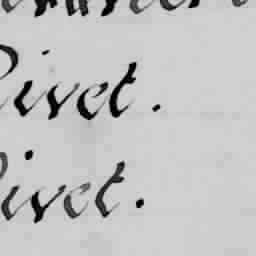 Rivet.
Rivet.